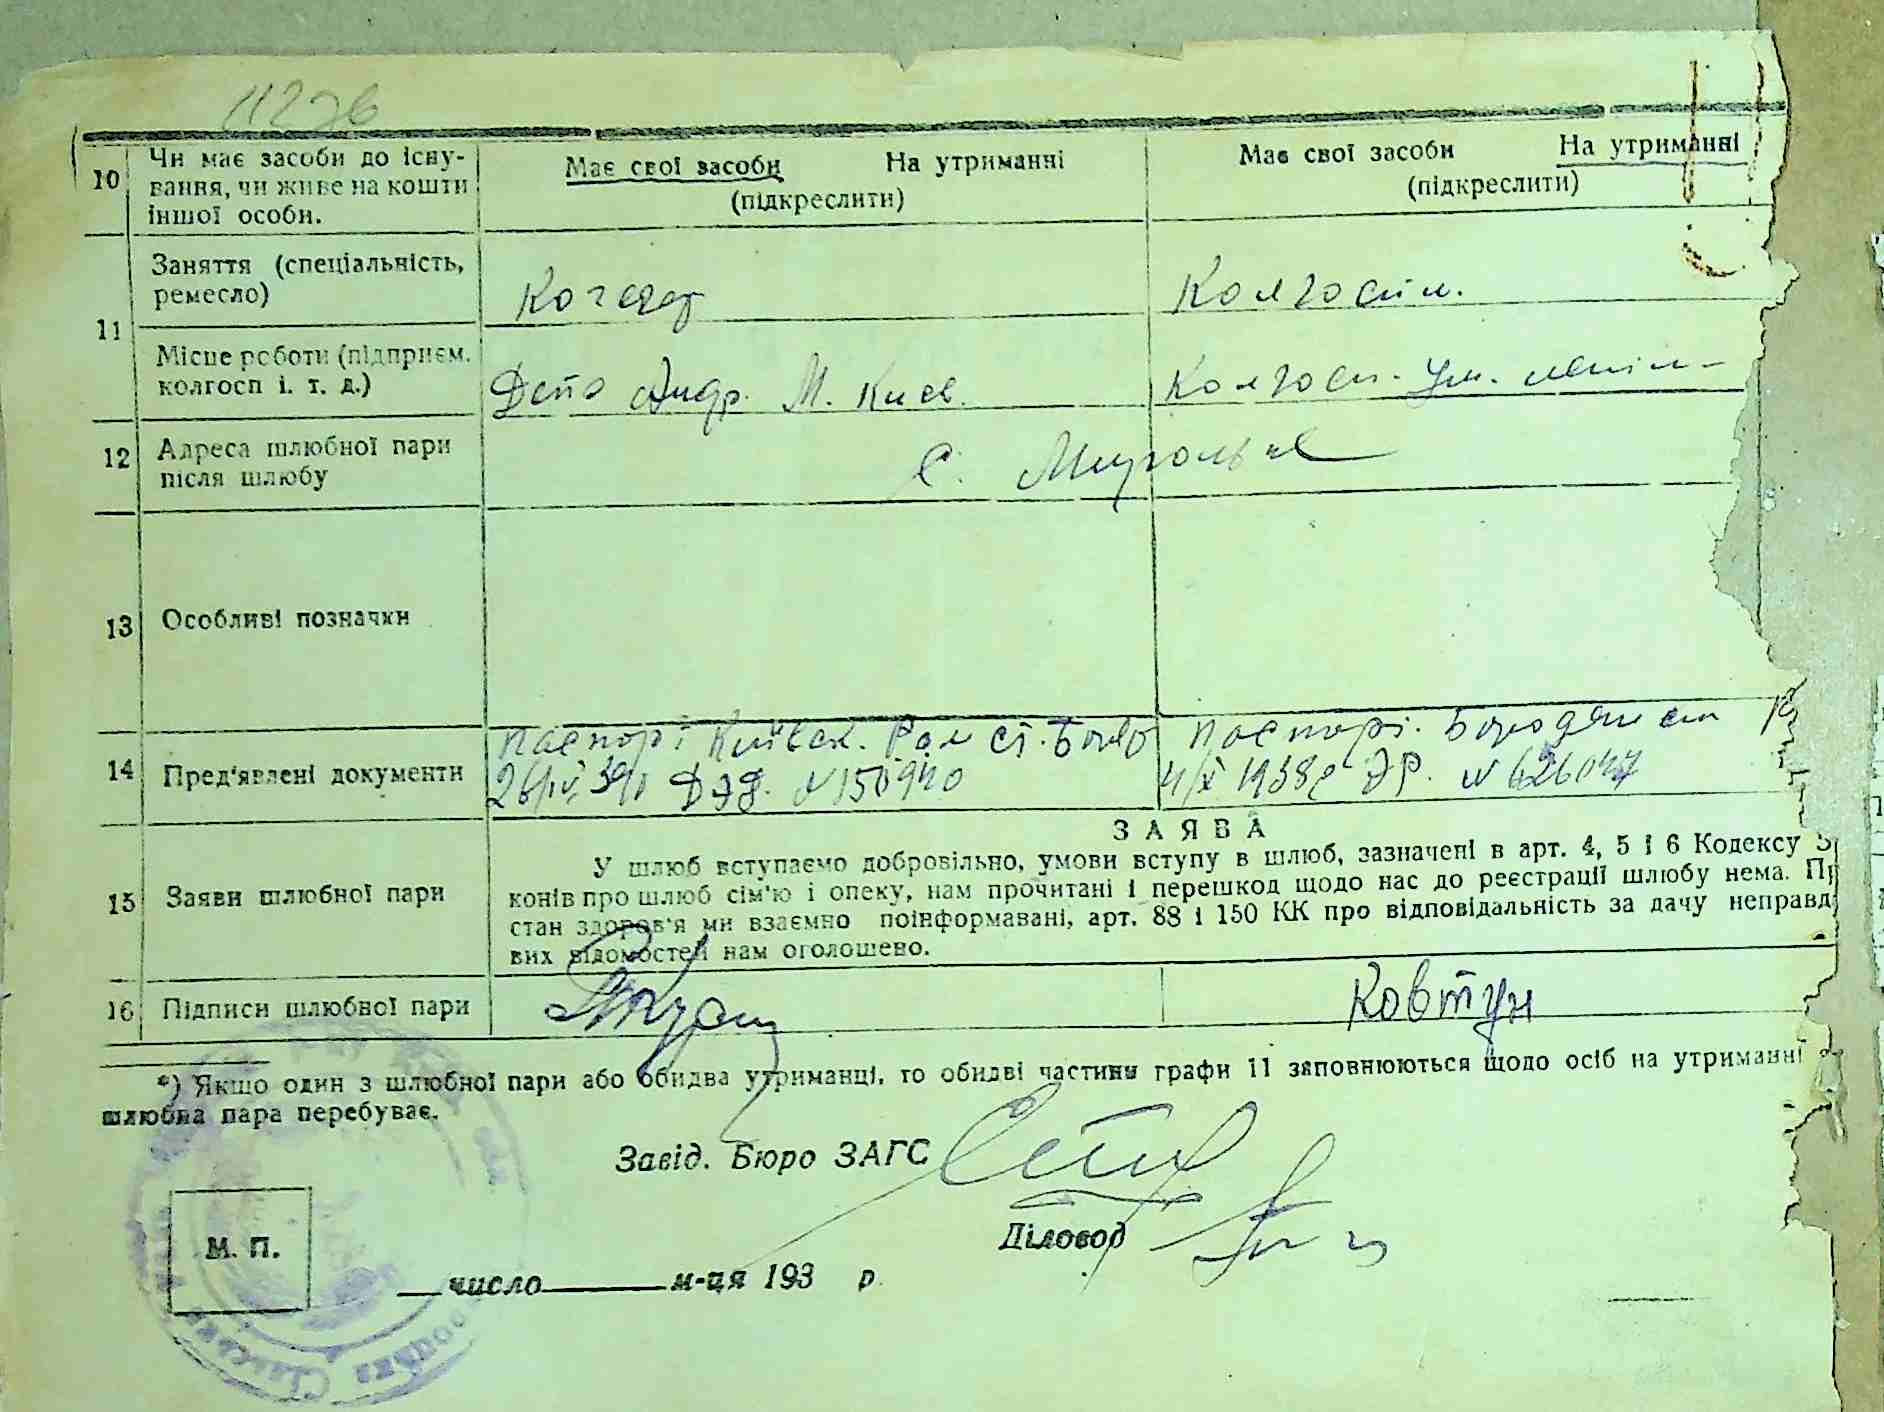 10 Чи має засоби до існу-
вання, чи живе на кошти
іншої особи.
Має свої засоби На утриманні
(підкреслити)
Має свої засоби На утриманні
(підкреслити)
11 Заняття (спеціальність,
ремесло)
Кочегар
Колгосп.
Місце роботи (підприєм.
колгосп і. т. д.)
Депо Андр. М. Киев.
Колгосп. Ум.
12 Адреса шлюбної пари
після шлюбу
С.
13 Особливі позначки
14 Пред'явлені документи
Паспорт Київск. Рал ст. Бояр
26/IV 39р ДЭД. N 150940
Паспорт. Бородянск
4/X 1938р ЭР. N 626047
15 Заяви шлюбної пари
ЗАЯВА
У шлюб вступаємо добровільно, умови вступу в шлюб, зазначені в арт. 4, 5 і 6 Кодексу З
конів про шлюб сім'ю і опеку, нам прочитані і перешкод щодо нас до реєстрації шлюбу нема. Пр
стан здоров'я ми взаємно поінформавані, арт. 88 і 150 КК про відповідальність за дачу неправд
вих відомостей нам оголошено.
16 Підписи шлюбної пари
Ковтун
*) Якщо один з шлюбної пари або обидва утриманці, то обидві частини графи 11 заповнюються щодо осіб на утриманні
шлюбна пара перебуває.
Завід. Бюро ЗАГС
Діловод
М. П.
число м-ця 193 р.